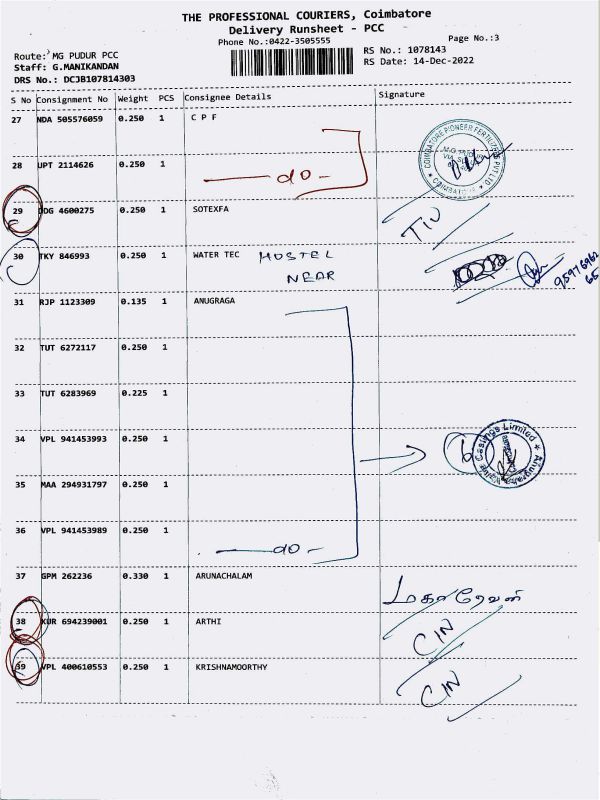 THE PROFESSIONAL COURIERS, Coimbatore
Delivery Runsheet - PCC
Phone No.:0422-3505555
Page No.:3
Route: MG PUDUR PCC
RS No.: 1078143
Staff: G.MANIKANDAN
RS Date: 14-Dec-2022
DRS No.: DCJB107814303
S No Consignment No Weight PCS Consignee Details Signature
27 NDA 505576059 0.250 1 C P F
28 UPT 2114626 0.250 1 do
29 DDG 4600275 0.250 1 SOTEXFA
30 TKY 846993 0.250 1 WATER TEC HOSTEL
NEAR
31 RJP 1123309 0.135 1 ANUGRAGA
32 TUT 6272117 0.250 1
33 TUT 6283969 0.225 1
34 VPL 941453993 0.250 1 6
35 MAA 294931797 0.250 1
36 VPL 941453989 0.250 1 do
37 GPM 262236 0.330 1 ARUNACHALAM மகாதேவன்
38 KUR 694239001 0.250 1 ARTHI CIN
39 VPL 400610553 0.250 1 KRISHNAMOORTHY CIN